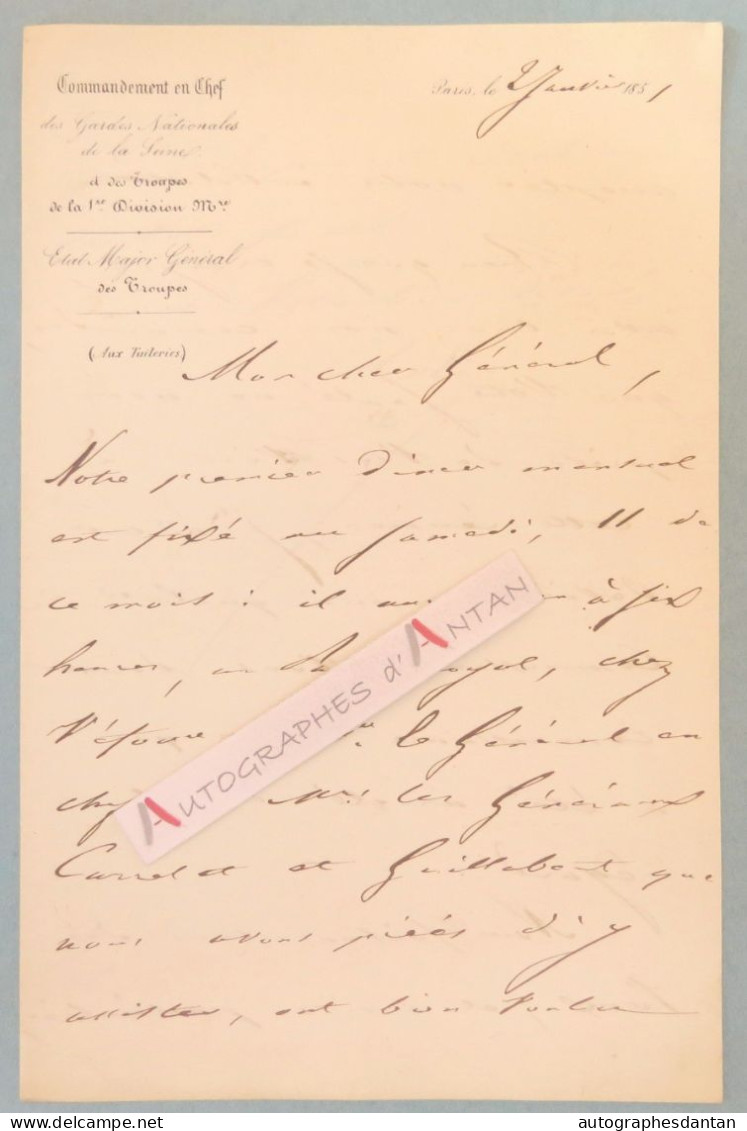 Commandement en Chef
des Gardes Nationales
de la Seine
et des Troupes
de la 1re Division Mre
Etat Major Général
des Troupes
(Aux Tuileries)
Paris, le 2 Janvier 1851
Mon cher Général,
Notre premier Diner mensuel
est fixé au Samedi, 11 de
ce mois : il au à six
heures, au Royal, chez
Véfour Mr. le Général en
chef Mrs les Généraux
Carrelet et Guillabert que
nous avons priés d'y
assister, ont bien voulu
AUTOGRAPHES d'ANTAN
delcampe.net
autographesdantan